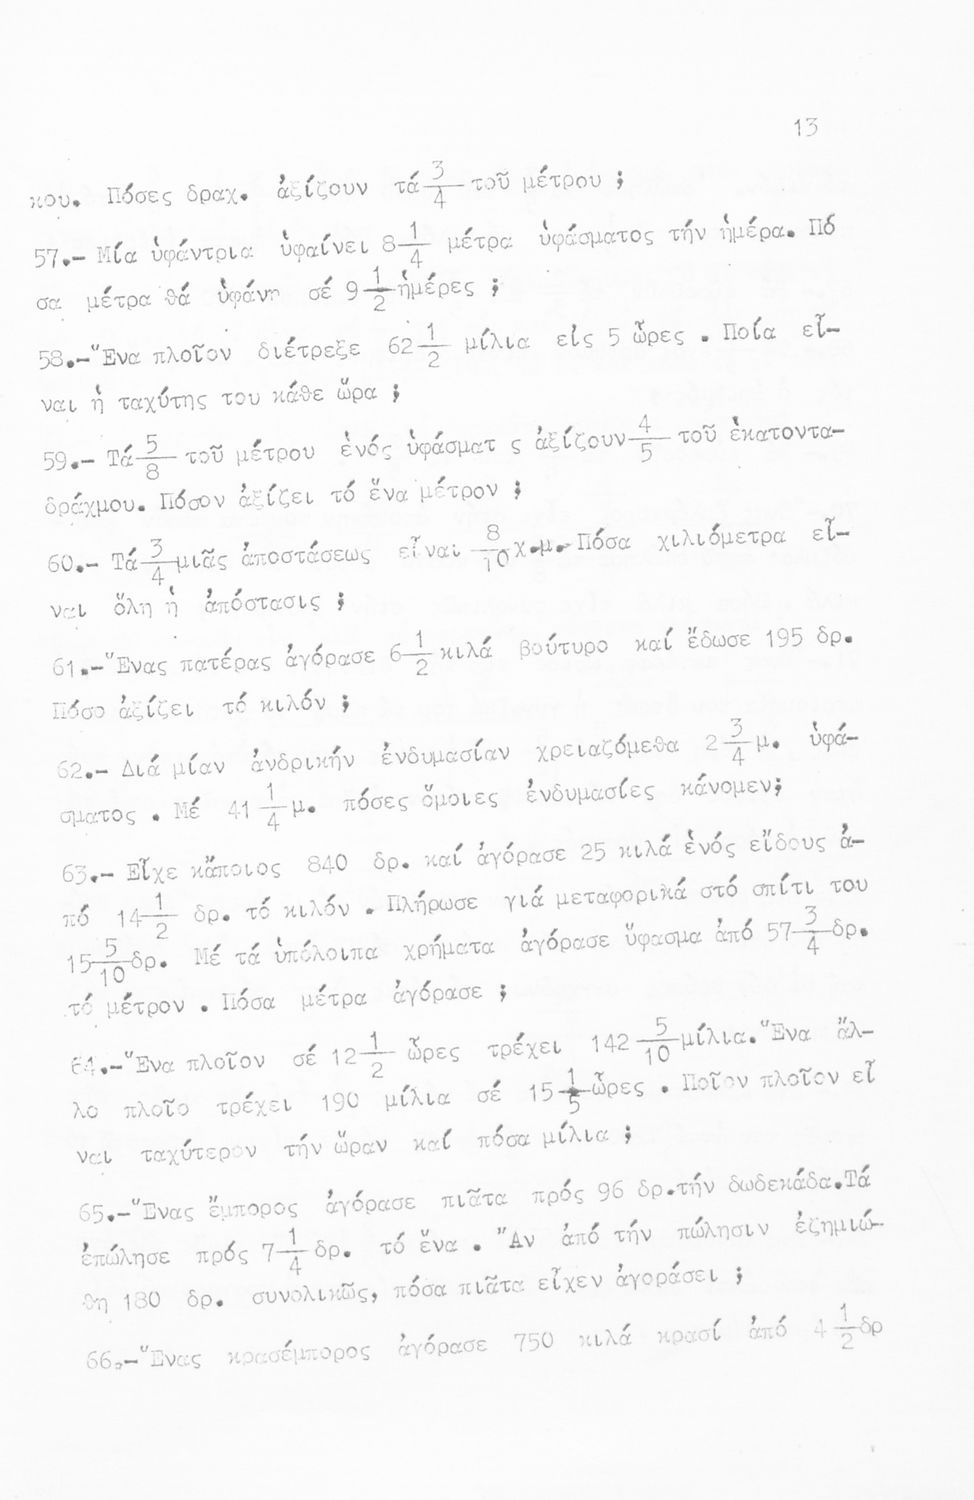 13
κου. Πόσες δραχ. ἀξίζουν τά 3/4 τοῦ μέτρου ;
57.- Μία ὑφάντρια ὑφαίνει 8 1/4 μέτρα ὑφάσματος τήν ἡμέρα. Πό
σα μέτρα θά ὑφάνη σέ 9 1/2 ἡμέρες ;
58.-Ἕνα πλοῖον διέτρεξε 62 1/2 μίλια εἰς 5 ὧρες . Ποία εἶ-
ναι ἡ ταχύτης του κάθε ὥρα ;
59.- Τά 5/8 τοῦ μέτρου ἑνός ὑφάσματ ς ἀξίζουν 4/5 τοῦ ἑκατοντα-
δράχμου. Πόσον ἀξίζει τό ἕνα μέτρον ;
60.- Τά 3/4 μιᾶς ἀποστάσεως εἶναι 8/10 χ.μ. Πόσα χιλιόμετρα εἶ-
ναι ὅλη ἡ ἀπόστασις ;
61.-Ἕνας πατέρας ἀγόρασε 6 1/2 κιλά βούτυρο καί ἔδωσε 195 δρ.
Πόσο ἀξίζει τό κιλόν ;
62.- Διά μίαν ἀνδρικήν ἐνδυμασίαν χρειαζόμεθα 2 3/4 μ. ὑφά-
σματος . Μέ 41 1/4 μ. πόσες ὅμοιες ἐνδυμασίες κάνομεν;
63.- Εἶχε κἄποιος 840 δρ. καί ἀγόρασε 25 κιλά ἑνός εἴδους ἀ-
πό 14 1/2 δρ. τό κιλόν . Πλήρωσε γιά μεταφορικά στό σπίτι του
15 5/10 δρ. Μέ τά ὑπόλοιπα χρήματα ἀγόρασε ὕφασμα ἀπό 57 3/4 δρ.
τό μέτρον . Πόσα μέτρα ἀγόρασε ;
64.-Ἕνα πλοῖον σέ 12 1/2 ὧρες τρέχει 142 5/10 μίλια. Ἕνα ἄλ-
λο πλοῖο τρέχει 190 μίλια σέ 15 1/5 ὧρες . Ποῖον πλοῖον εἶ
ναι ταχύτερον τήν ὥραν καί πόσα μίλια ;
65.-Ἕνας ἔμπορος ἀγόρασε πιᾶτα πρός 96 δρ.τήν δωδεκάδα.Τά
ἐπώλησε πρός 7 1/4 δρ. τό ἕνα . Ἄν ἀπό τήν πώλησιν ἐζημιώ-
θη 180 δρ. συνολικῶς, πόσα πιᾶτα εἶχεν ἀγοράσει ;
66.-Ἕνας κρασέμπορος ἀγόρασε 750 κιλά κρασί ἀπό 4 1/2 δρ